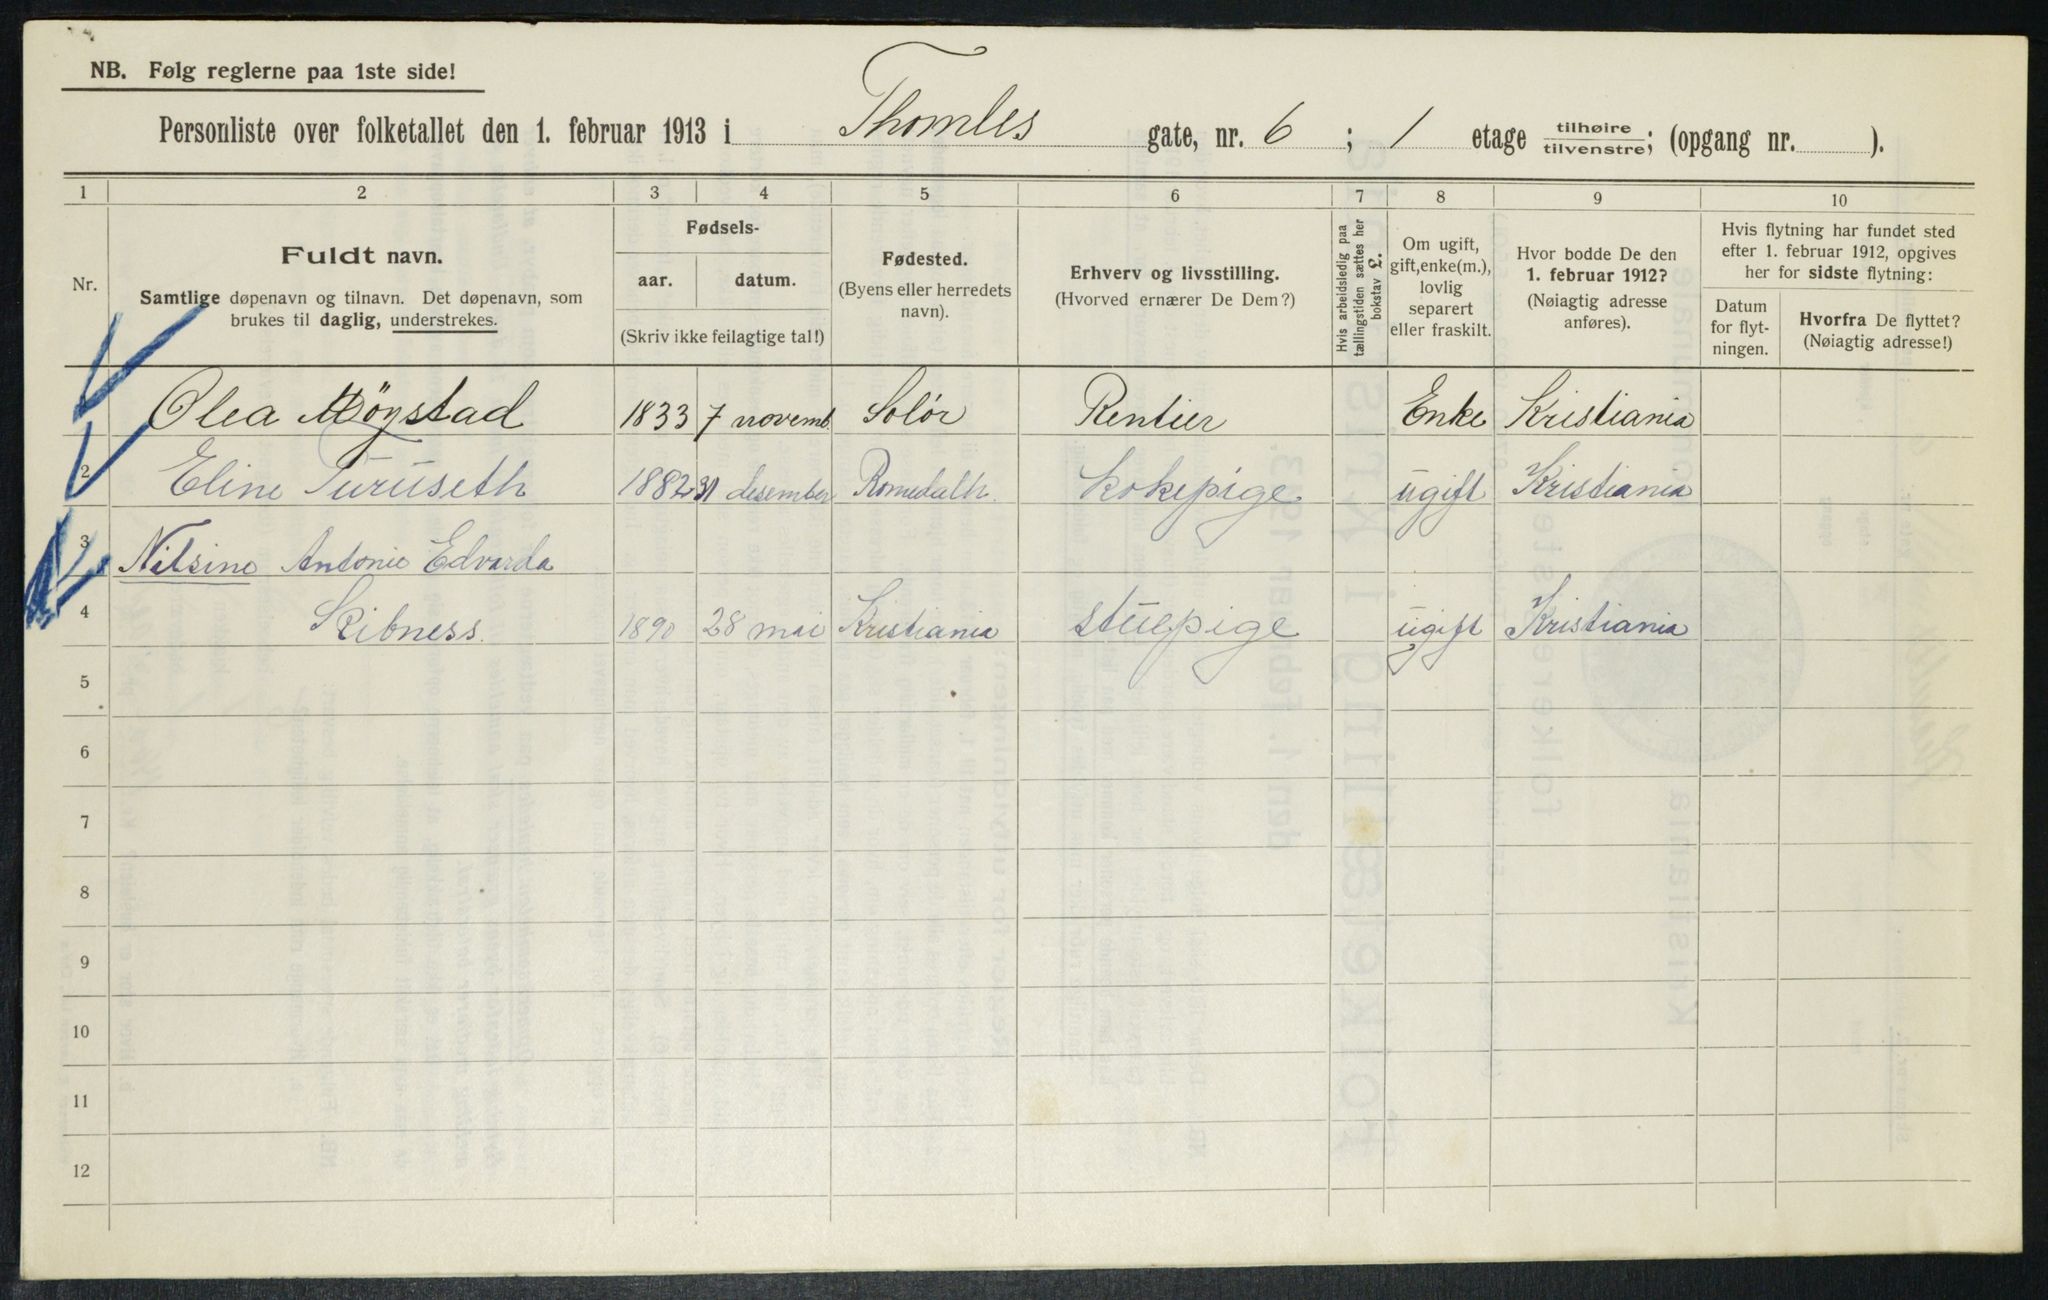 NB. Følg reglerne paa 1ste side!
Personliste over folketallet den 1. februar 1913 i Thomles gate, nr. 6 ; 1 etage tilhøire tilvenstre; (opgang nr. ).
1 2 3 4 5 6 7 8 9 10
Nr.
Fuldt navn.
Samtlige døpenavn og tilnavn. Det døpenavn, som
brukes til daglig, understrekes.
Fødsels-
aar. datum.
(Skriv ikke feilagtige tal!)
Fødested.
(Byens eller herredets
navn).
Erhverv og livsstilling.
(Hvorved ernærer De Dem?)
Hvis arbeidsledig paa
tællingstiden sættes her
bokstav L.
Om ugift,
gift, enke(m.),
lovlig
separert
eller fraskilt.
Hvor bodde De den
1. februar 1912?
(Nøiagtig adresse
anføres).
Hvis flytning har fundet sted
efter 1. februar 1912, opgives
her for sidste flytning:
Datum
for flyt-
ningen.
Hvorfra De flyttet?
(Nøiagtig adresse!)
Olea Møystad 1833 7 novemb. Solør Rentier Enke Kristiania
2 Eline Turuseth 1882 31 desember Romedalh. kokepige ugift Kristiania
3 Nilsine Antonie Edvarda
4 Skibness. 1890 28 mai Kristiania stuepige ugift Kristiania
5
6
7
8
9
10
11
12